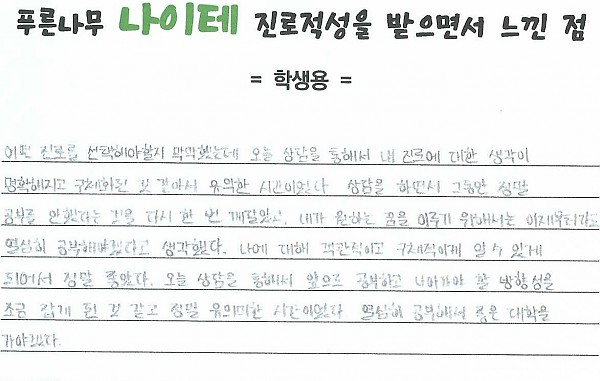 푸른나무 나이테 진로적성을 받으면서 느낀 점
= 학생용 =
어떤 진로를 선택해야할지 막막했는데 오늘 상담을 통해서 내 진로에 대한 생각이
명확해지고 구체화된 것 같아서 유익한 시간이었다 상담을 하면서 그동안 정말
공부를 안했다는 것을 다시 한 번 깨달았고, 내가 원하는 꿈을 이루기 위해서는 이제부터라도
열심히 공부해야겠다고 생각했다. 나에 대해 객관적이고 구체적이게 알 수 있게
되어서 정말 좋았다. 오늘 상담을 통해서 앞으로 공부하고 나아가야 할 방향성을
조금 잡게 된 것 같고 정말 유의미한 시간이었다 열심히 공부해서 좋은 대학을
가야겠다.